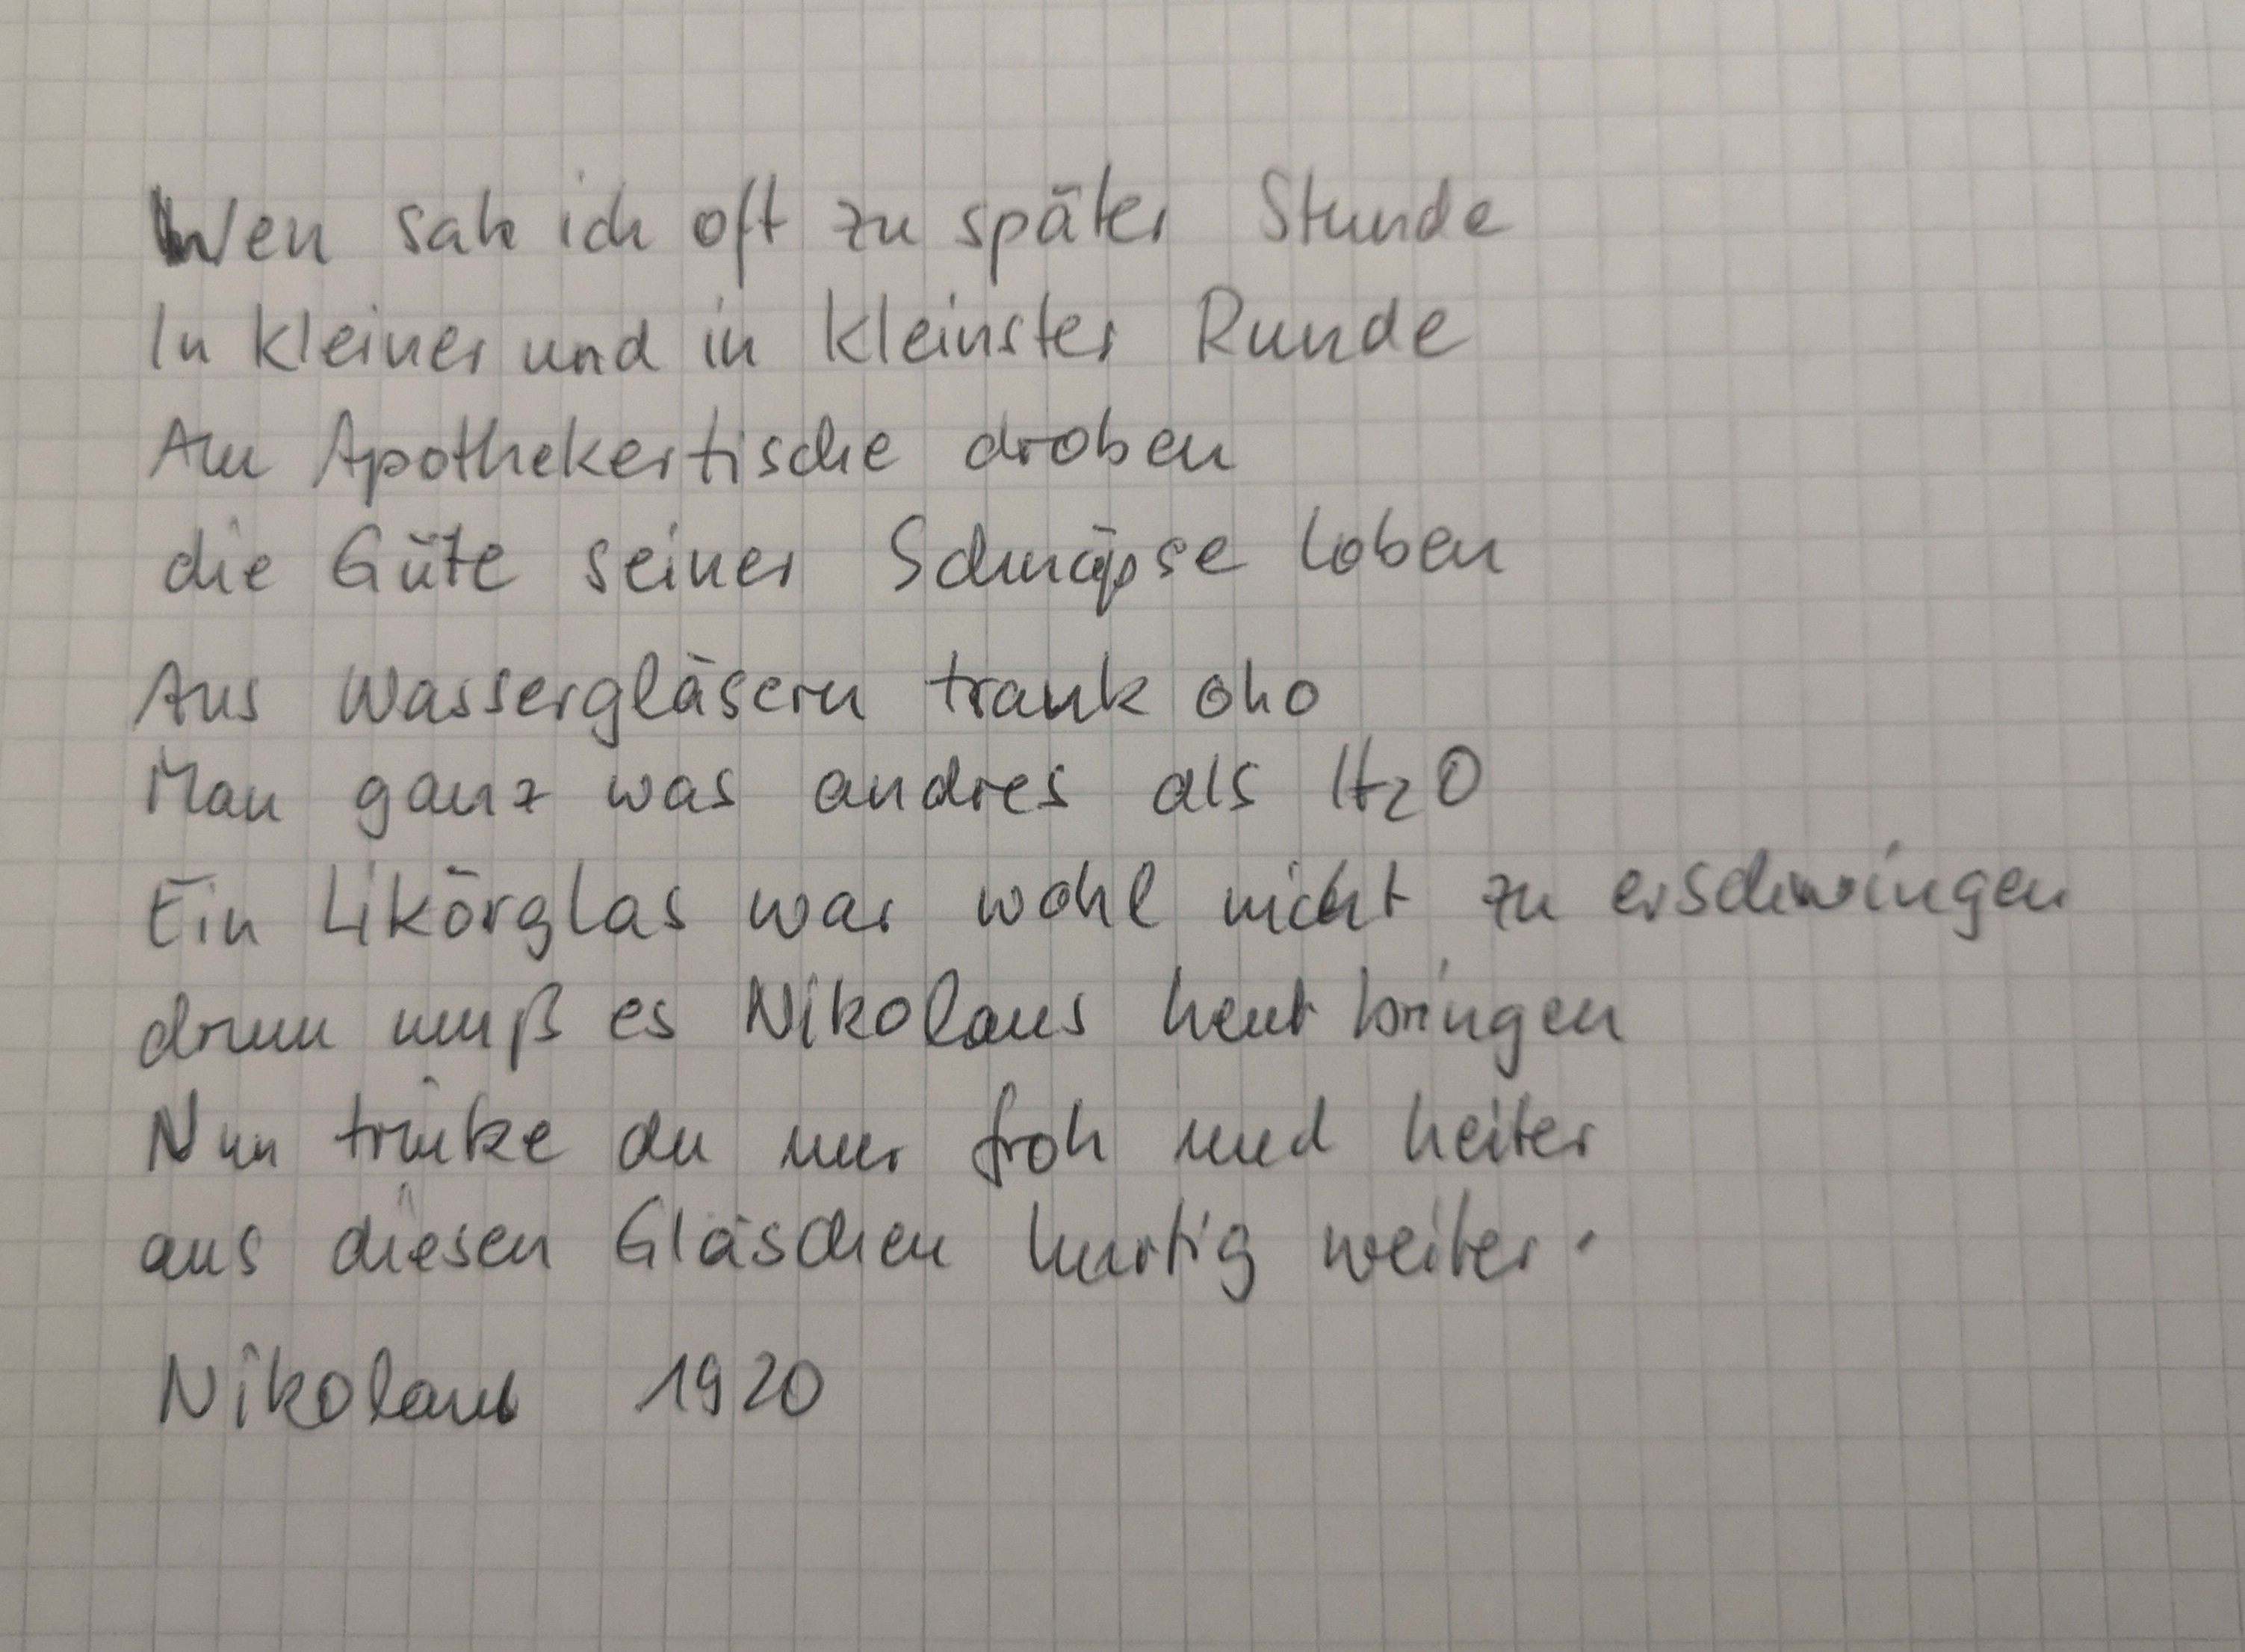 Wen sah ich oft zu später Stunde
In kleiner und in kleinster Runde
Am Apothekertische droben
die Güte seiner Schnäpse loben
Aus Wassergläsern trank oho
Man ganz was andres als H2O
Ein Likörglas war wohl nicht zu erschwingen
drum muß es Nikolaus heut bringen
Nun trinke du nur froh und heiter
aus diesen Gläschen hurtig weiter.
Nikolaus 1920